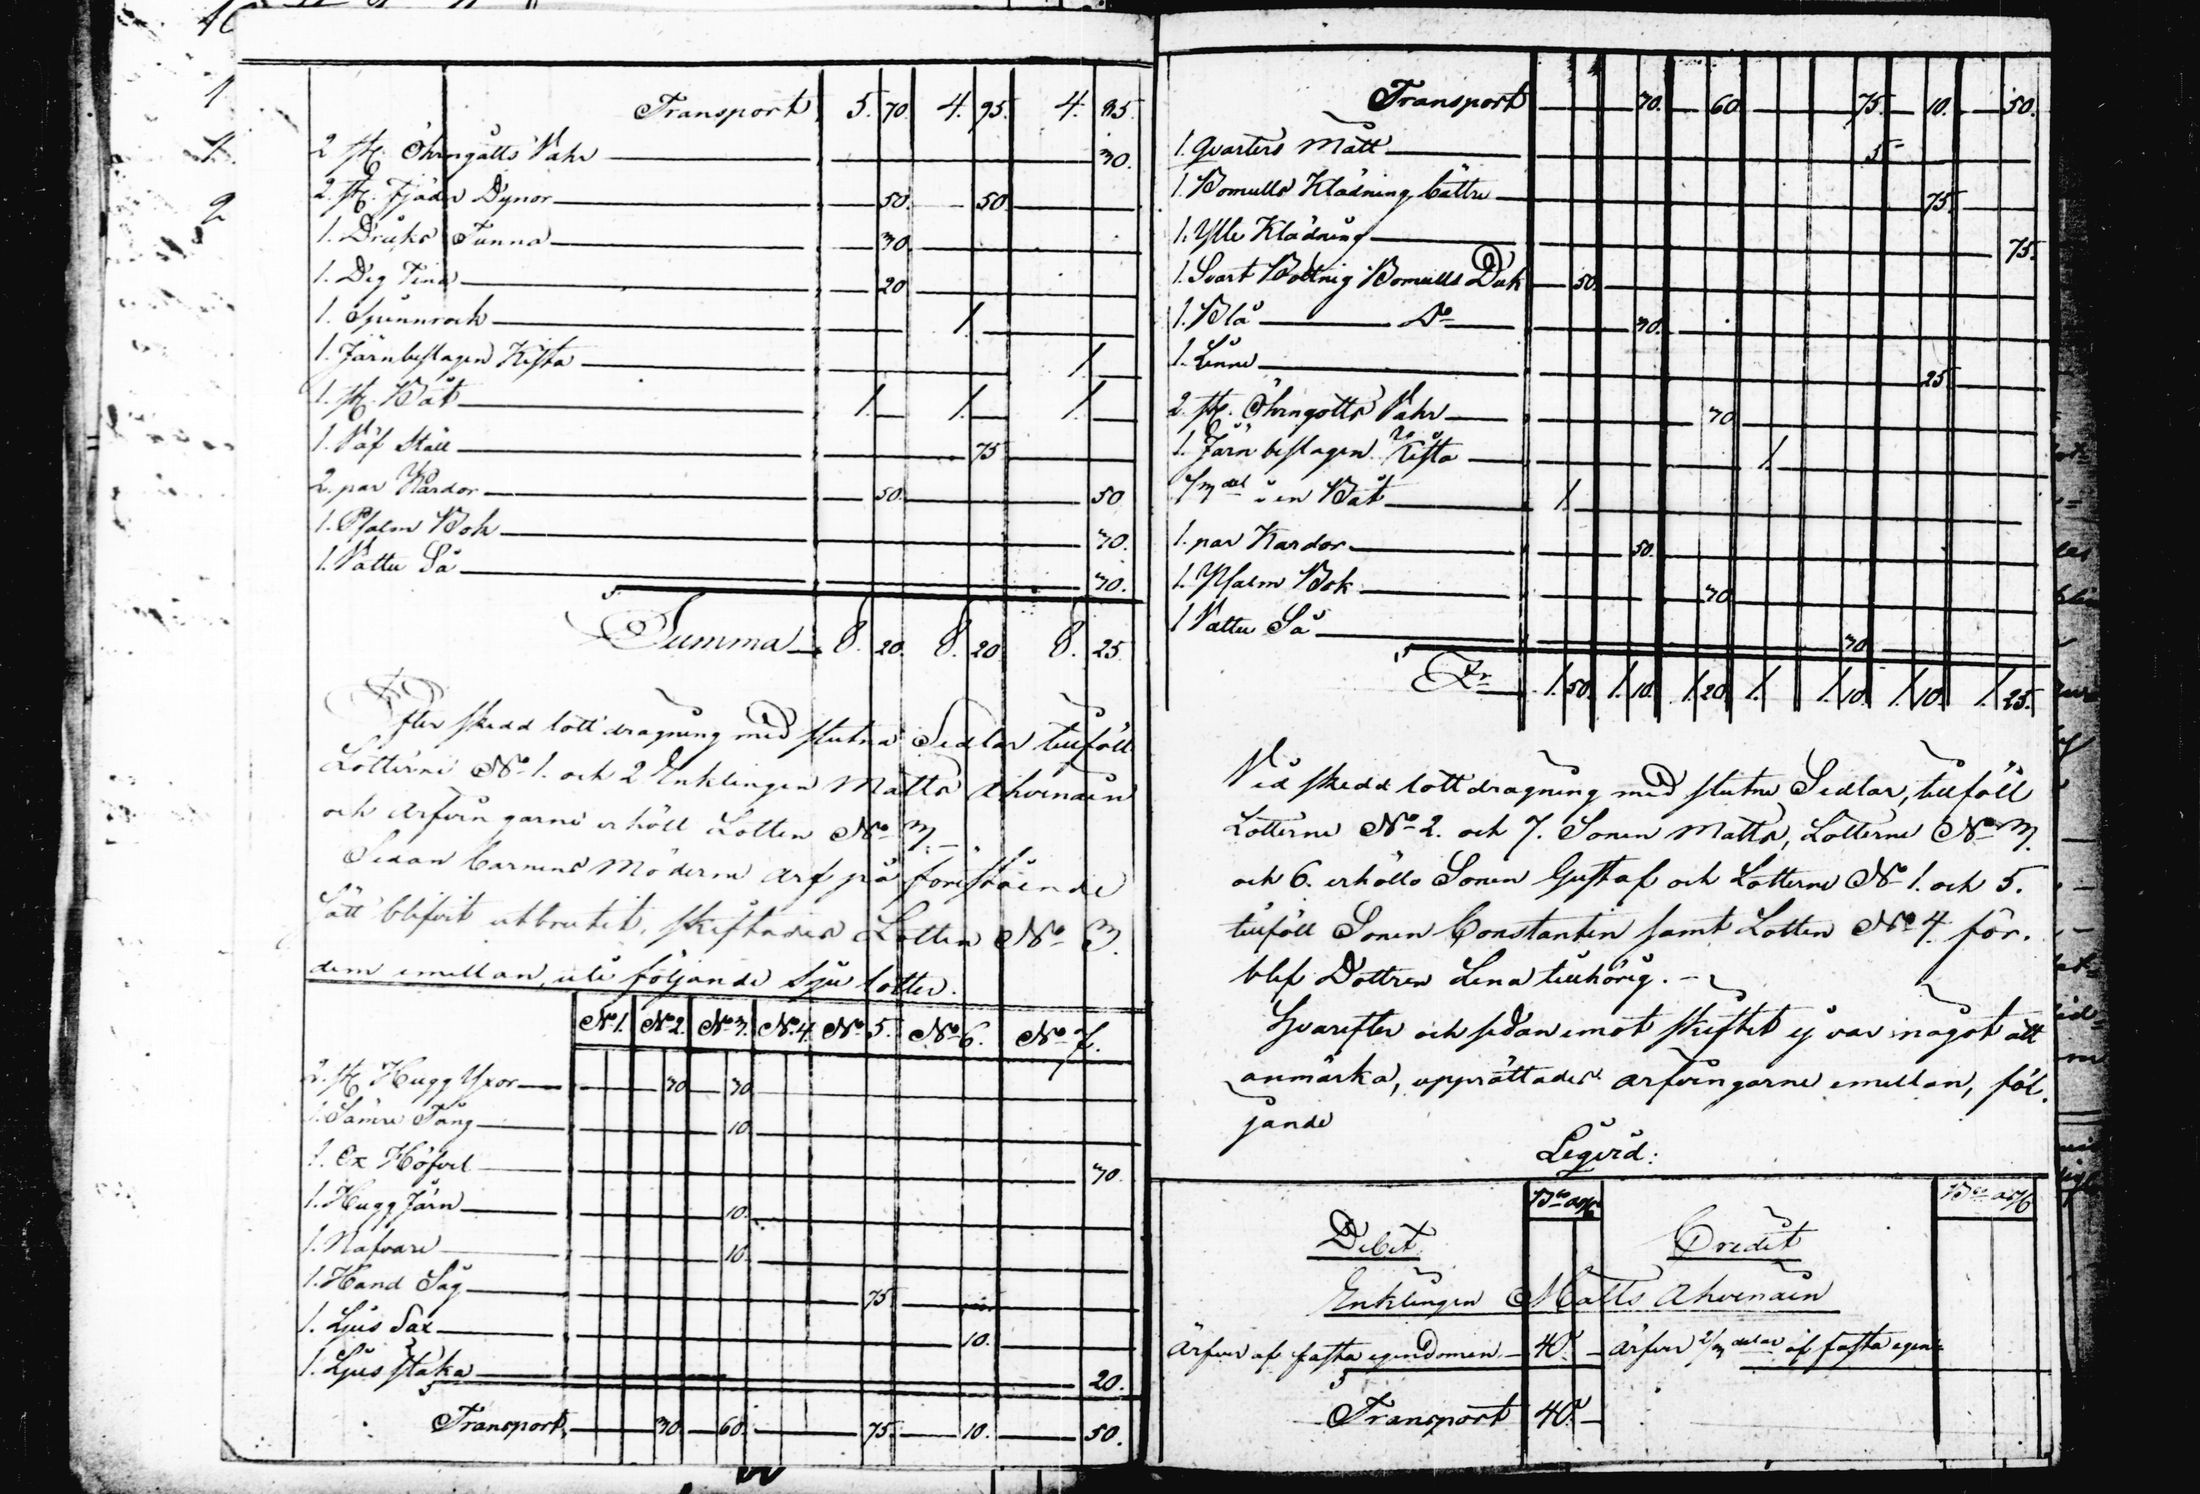 Transport 5. 70. 4. 95. 4. 85.
2 st. Öhrngåtts Vahr 30.
2. st. Fjäder Dynor 50. 50.
1. Dricks Tunna 30.
1. Deg Tina 20
1. Spinnrock 1.
1. Järnbeslagen Kista 1.
1. st. Båt 1. 1. 1.
1. Väf Ståll 75
2. par Kardor 50. 50
1. Psalm Bok 30.
1. Vattu Så 30.
Summa 8. 20. 8. 20 8. 25.
Efter skedd lottdragning med slutna Sedlar tillföll
Lotterne No 1. och 2 Enklingen Matts Ahvenain
och Arfvingarne erhöll Lotten No 3.
Sedan barnens Möderne arf på föreståènde
sätt blifvit utbrutit, skiftades Lotten No 3.
dem emellan, uti följande sju lotter.
No 1. No 2. No 3. No 4. No 5. No 6. No 7.
2. st. Hugg Yxor 30 30
1. Sämre Tång 10.
1. Ox Höfvel 30.
1. Hugg Järn 10.
1. Nafvare 10.
1. Hand Såg 75.
1. Ljus Sax 10.
1. Ljus staka 20.
Transport, 30. 60. 75. 10. 50.
Transport 30. 60. 75. 10. 50.
1. Qvarters Mått 5
1. Bomulls Klädning bättre 75.
1. Ylle Klädning 75.
1. Svart Bottnig Bomulls Duk 50.
1. Blå Do 30.
1. Linne 25.
2. st. Öhrngotts Vahr 30
1. Järn beslagen Kista 1.
1/3 del i en Båt 1.
1. par Kardor 50.
1. Psalm Bok 30
1 Vattu Så 30
1. 50. 1. 10. 1. 20. 1. 1. 10. 1. 10. 1. 25.
Vid skedd lottdragning med slutne Sedlar, tillföll
Lotterne No 2. och 7. Sonen Matts, Lotterne No 3.
och 6. erhölls Sonen Gustaf och Lotterne No 1. och 5.
tillföll Sonen Constantin samt Lotten No 4. för-
blef Dottren Lena tillhörig.
Hvarefter och sedan emot skiftet ej var något att
anmärka, upprättades arfvingarne emellan, föl-
jande
Liqvid:
Debet Credit
Enklingen Matts Ahvenain
Ärfver af fasta egendomen 40. Ärfver 2/3 delar af fasta egen-
Transport 40.